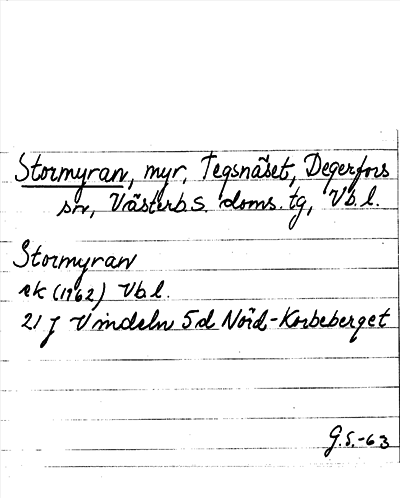 Stormyran, myr, Tegsnäset, Degerfors
sn, Västerb.s. doms. tg, Vb.l.
Stormyran
ek (1962) Vb.l.
21 J Vindeln 5d Nörd-Korbeberget
G.S.-63